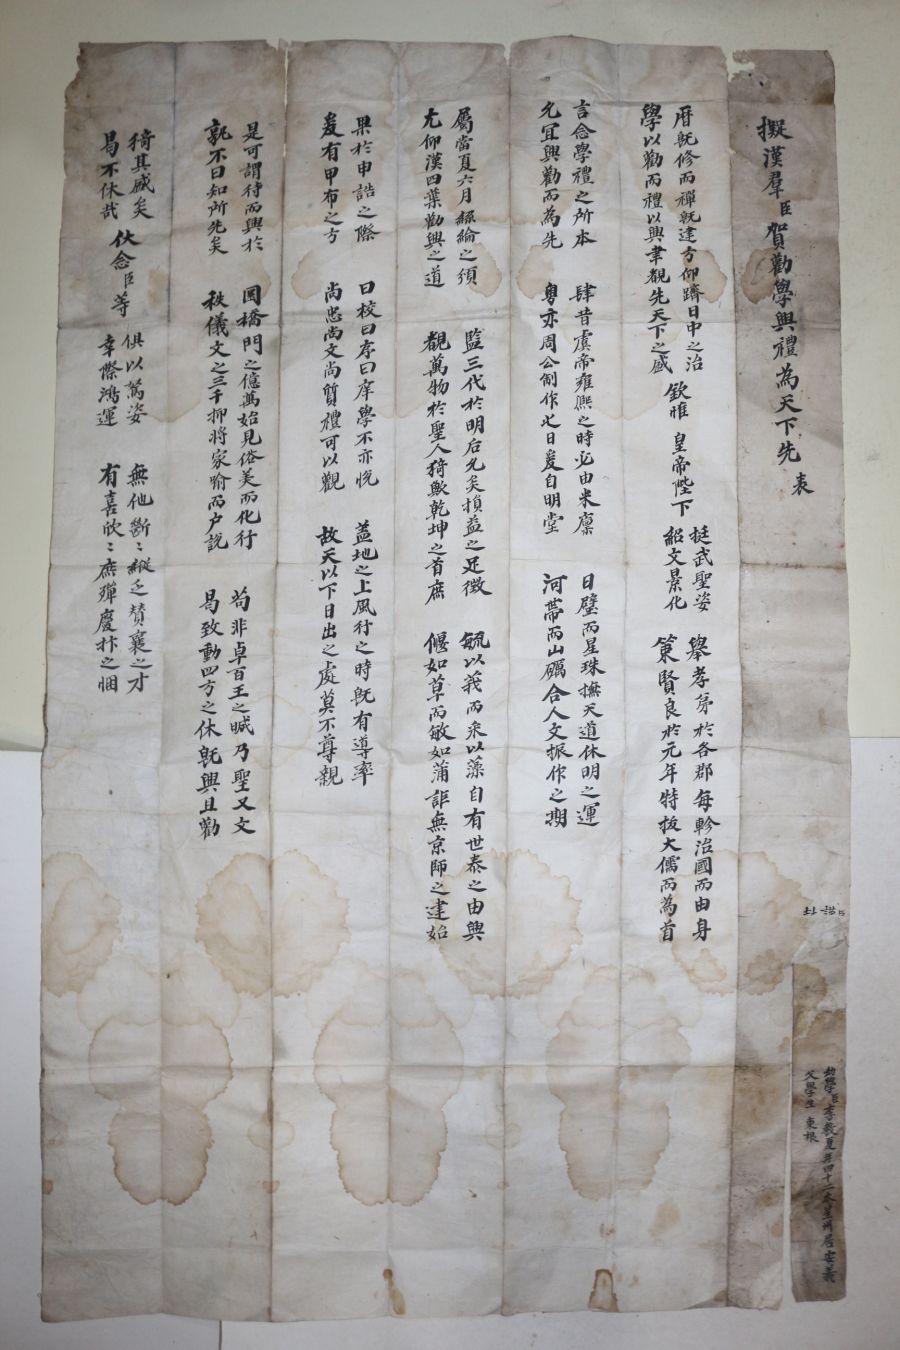 擬漢羣臣賀勸學興禮為天下先 表
曆既修而禪既建方仰躋日中之治
學以勸而禮以興聿覩先天下之盛
欽惟 皇帝陛下
挺武聖姿
紹文景化
擧孝第於各郡每軫治國而由身
策賢良於元年特拔大儒而為首
言念學禮之所本
允宜興勸而為先
肆昔虞帝雍熙之時必由米廩
粤亦周公制作之日爰自明堂
日璧而星珠撫天道休明之運
河帶而山礪合人文振作之期
屬當夏六月絲綸之須
尤仰漢四葉勸興之道
監三代於明后允矣損益之足徵
覩萬物於聖人猗歟乾坤之首庶
毓以莪而釆以藻自有世泰之由興
偃如草而敏如蒲詎無京師之建始
果於申誥之際
爰有甲布之方
曰校曰序曰庠學不亦悅
尚忠尚文尚質禮可以觀
盖地之上風行之時旣有導率
故天以下日出之處莫不尊親
是可謂待而興於
孰不曰知所先矣
圜橋門之億萬始見俗美而化行
秩儀文之三千抑將家喩而户說
苟非卓百王之 乃聖又文
曷致動四方之休旣興且勸
猗其盛矣
曷不休哉
伏念臣等
俱以駑姿
幸際鴻運
無他斷〻縱乏贊襄之才
有喜欣〻庶殫慶抃之悃
幼學臣李敎夏年四十二本星州居安義
父學生 東根